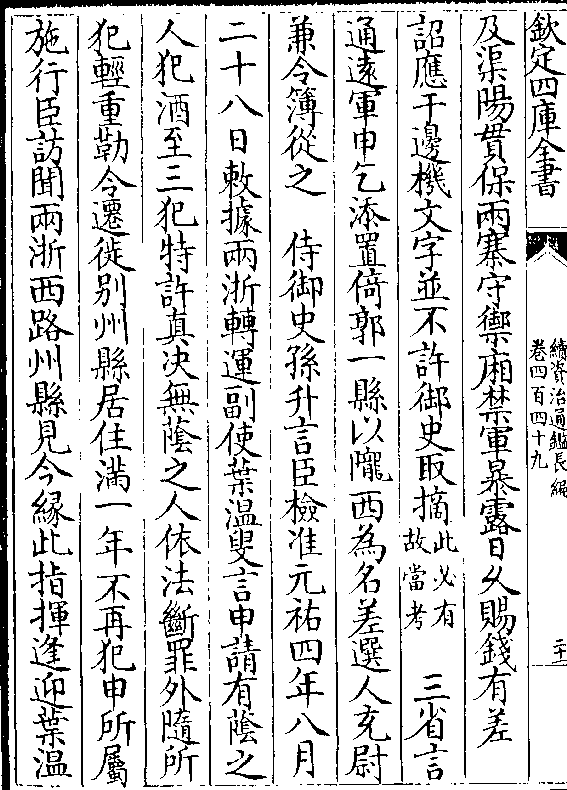 欽定四庫全書
續資治通鑑長編
卷四百四十九
二十
及渠陽貫保兩寨守禦廂禁軍暴露日久賜錢有差
詔應干邊機文字並不許御史取摘此必有故當考 三省言
通遠軍申乞添置倚郭一縣以隴西為名差選人充尉
兼令簿從之 侍御史孫升言臣檢准元祐四年八月
二十八日敕據兩浙轉運副使葉溫叟言申請有蔭之
人犯酒至三犯特許真決無蔭之人依法斷罪外隨所
犯輕重勒令遷徙别州縣居住滿一年不再犯申所屬
施行臣訪聞兩浙西路州縣見今縁此指揮逢迎葉溫